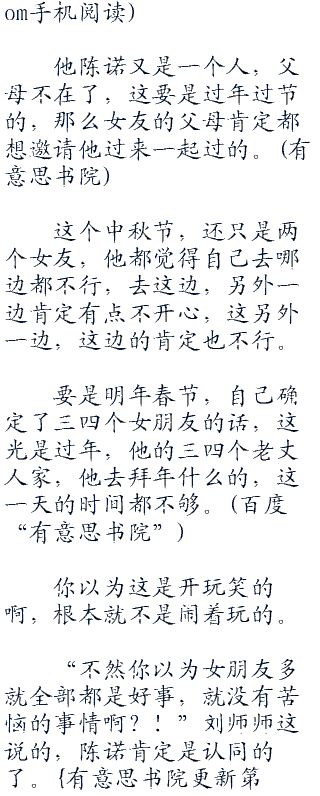 om手机阅读)
他陈诺又是一个人，父
母不在了，这要是过年过节
的，那么女友的父母肯定都
想邀请他过来一起过的。(有
意思书院)
这个中秋节，还只是两
个女友，他都觉得自己去哪
边都不行，去这边，另外一
边肯定有点不开心，这另外
一边，这边的肯定也不行。
要是明年春节，自己确
定了三四个女朋友的话，这
光是过年，他的三四个老丈
人家，他去拜年什么的，这
一天的时间都不够。(百度
“有意思书院”)
你以为这是开玩笑的
啊，根本就不是闹着玩的。
“不然你以为女朋友多
就全部都是好事，就没有苦
恼的事情啊？！”刘师师这
说的，陈诺肯定是认同的
了。{有意思书院更新第